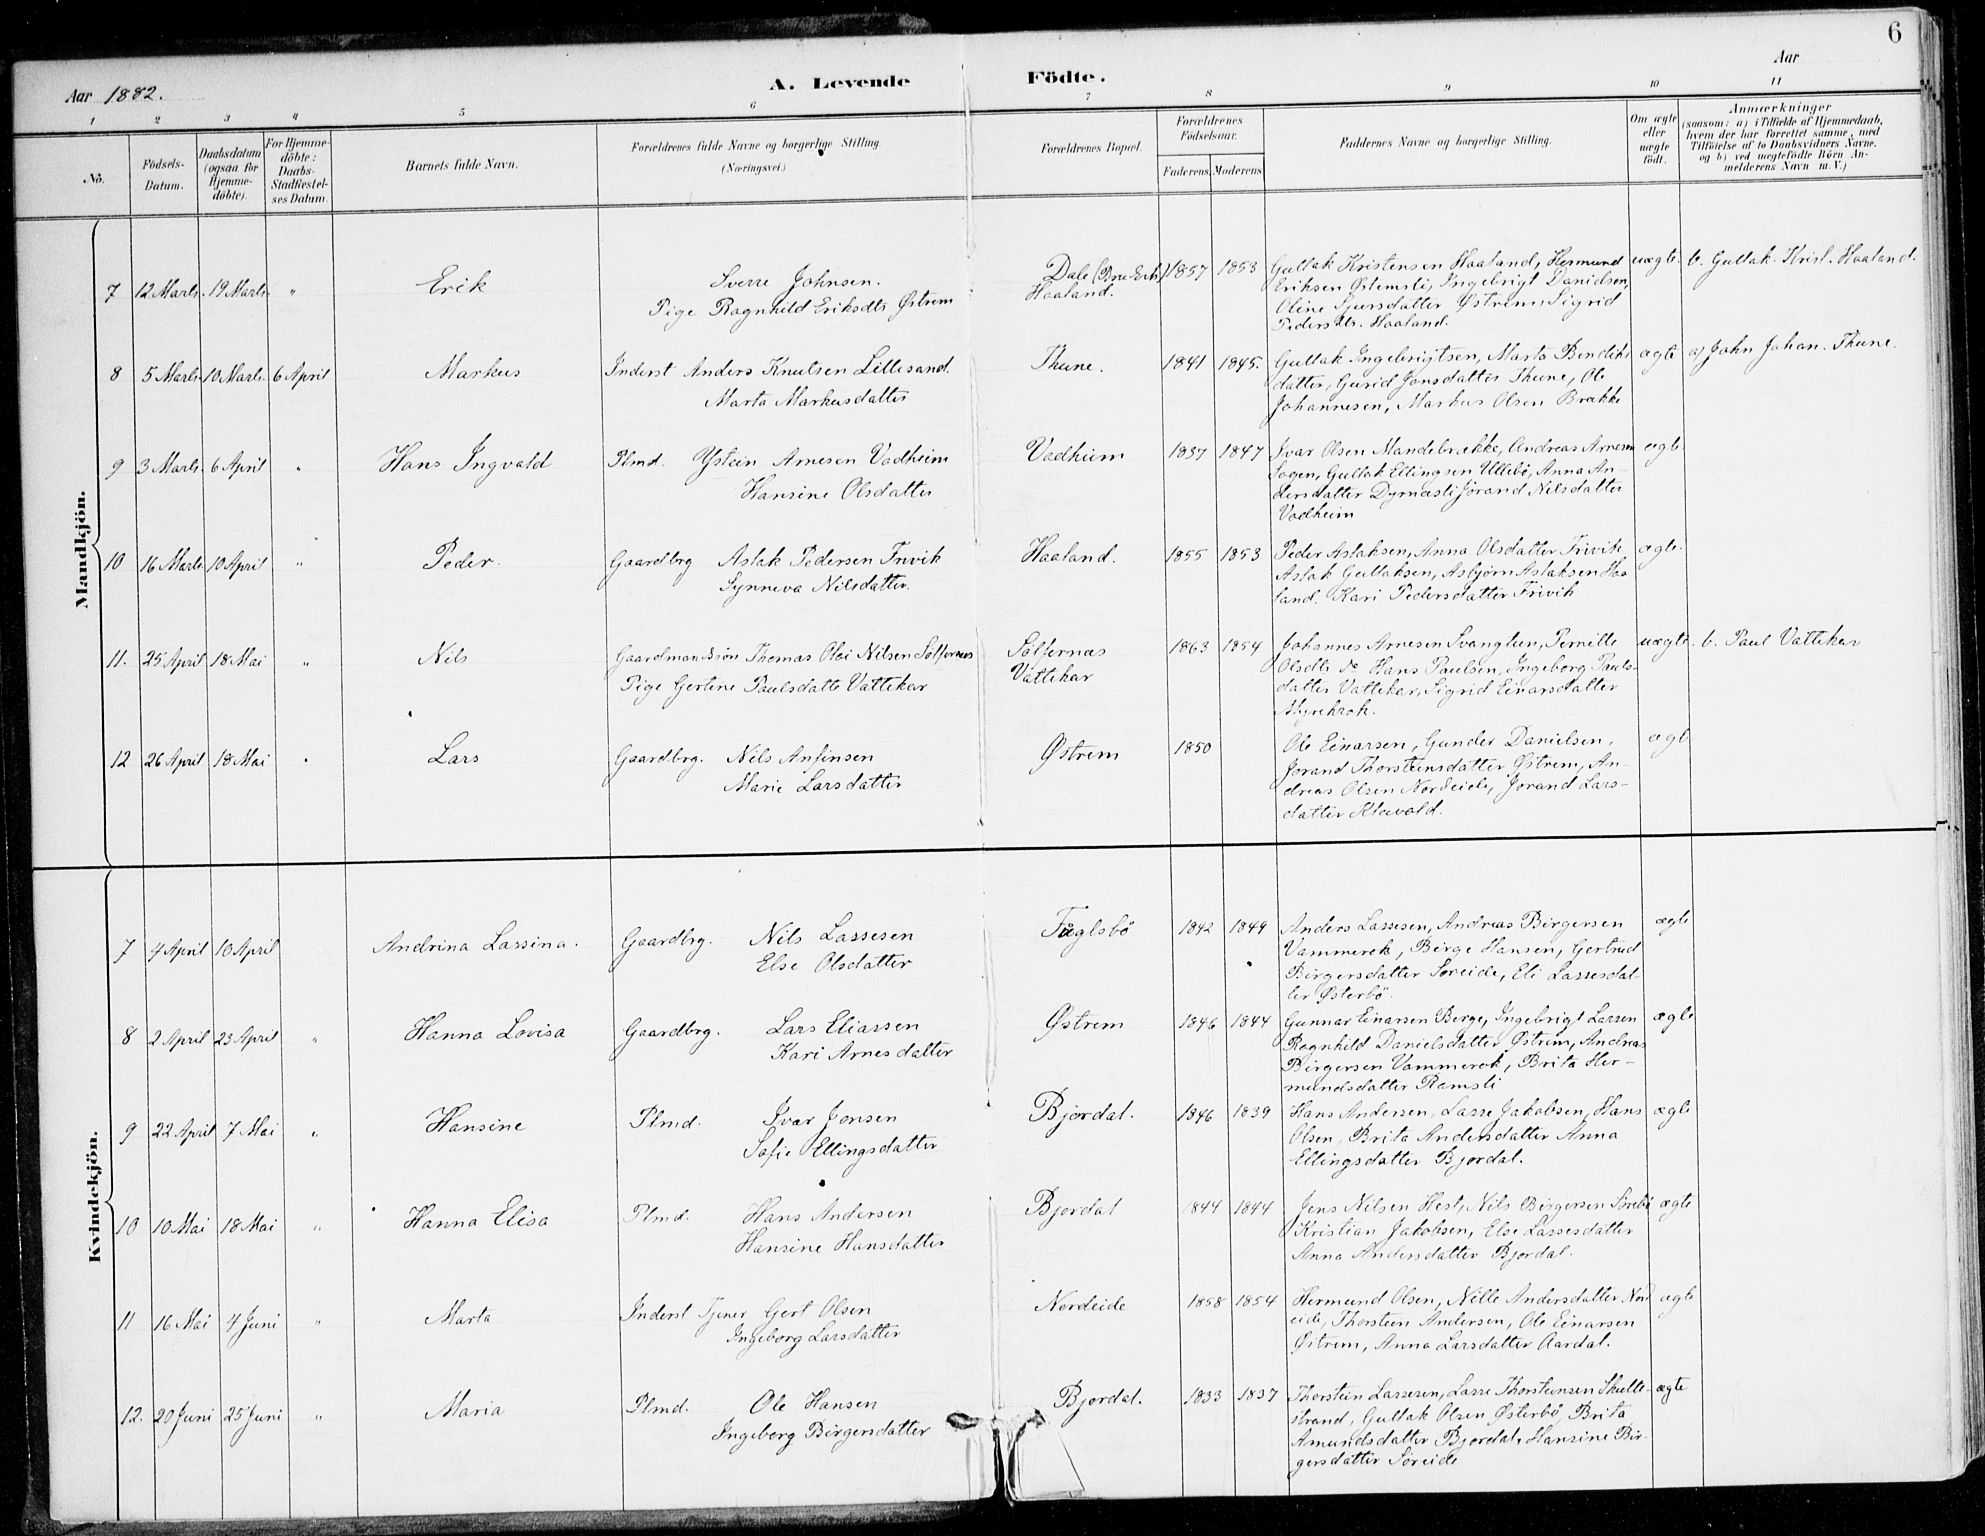 6
Aar 1882. A. Levende Födte. Aar
1 2 3 4 5 6 7 8 9 10 11
No.
Födsels-Datum.
Daabsdatum (ogsaa for Hjemmedöbte).
For Hjemmedöbte: Daabs-Stadfæstelses Datum.
Barnets fulde Navn.
Forældrenes fulde Navne og borgerlige Stilling.
(Næringsvei.)
Forældrenes Bopæl.
Forældrenes Födselsaar.
Faderens. Moderens.
Faddernes Navne og borgerlige Stilling.
Om ægte eller uægte födt.
Anmærkninger
(saasom: a) i Tilfælde af Hjemmedaab, hvem der har forrettet samme, med Tilföielse af to Daabsvidners Navne, og b) ved uægtefödte Börn Anmelderens Navn m.V.)
Mandkjön.
7 12 Marts. 19 Marts. " Erik Sverre Johnsen. Dale 1857 1853 Gullak Kristensen Haaland, Hermund uægte. b. Gullak Krist. Haaland.
Pige Ragnhild Eriksdtr Østrem Haaland. Eriksen Østemsli, Ingebrigt Danielsen,
Oline Sjursdatter Østrem, Sigrid
Pedersdtr. Haaland.
8 5 Marts 10 Marts. 6 April Markus Inderst Anders Knutsen Lillesand. Thune. 1841 1845. Gullak Ingebrigtsen, Marta Bendiks ægte a) John Johan. Thune.
Marta Markusdatter datter, Gurid Jonsdatter Thune, Ole
Johannesen, Markus Olsen Brække
9 3 Marts. 6 April " Hans Ingvald Plmd. Ystein Arnesen Vadheim Vadheim 1837 1847 Ivar Olsen Mandebrække, Andreas Arnesen ægte
Hansine Olsdatter Sagen, Gullak Ellingsen Ullebö, Anna An-
dersdatter Dymæsli Jorand Nilsdatter
Vadheim
10 16 Marts 10 April " Peder. Gaardbrg Aslak Pedersen Trivik Haaland. 1855 1853 Peder Aslaksen, Anna Olsdatter Trivik ægte.
Synneva Nilsdatter. Aslak Gullaksen, Asbjørn Aslaksen Haa
land. Kari Pedersdatter Trivik
11. 25 April 18 Mai " Nils Gaardmandssön Thomas Olai Nilsen Sölfernæs Sölfernæs 1863 1854 Johannes Arnesen Svangtun, Pernille uægte. b. Paul Vattekar
Pige Gertine Paulsdatte Vattekar Vattekar Olsdtr do Hans Paulsen, Ingeborg Pauls-
datter Vattekar, Sigrid Einarsdatter
Myrekrok.
12 26 April 18 Mai " Lars Gaardbrg. Nils Anfinsen Østrem 1850 Ole Einarsen, Gunder Danielsen, ægte
Marie Larsdatter Jorand Thorsteinsdatter Østrem, An-
dreas Olsen Nordeide, Jorand Lars-
datter Klævold.
Kvindekjön.
7 4 April 10 April Andrina Lassina. Gaardbrg. Nils Lassesen Fuglsbö 1842 1849 Anders Lassesen, Andreas Birgersen ægte
Else Olsdatter Vammerok, Birge Hansen, Gertrud
Birgersdatter Søreide, Eli Lassesdat-
ter Østerbö.
8 2 April 23 April " Hanna Lovisa Gaardbrg. Lars Eliassen Østrem 1846 1844 Gunnar Einarsen Berge, Ingebrigt Larsen ægte
Kari Arnesdatter Ragnhild Danielsdatter Østrem, Andreas
Birgersen Vammerok, Brita Her-
mundsdatter Ramsli
9 22 April 7 Mai " Hansine Plmd. Ivar Jonsen Bjordal. 1846 1839 Hans Andersen, Lasse Jakobsen, Hans ægte
Sofie Ellingsdatter Olsen, Brita Andersdatter Anna
Ellingsdatter Bjordal.
10 10 Mai 18 Mai " Hanna Elisa Plmd. Hans Andersen Bjordal 1844 1844 Jens Nilsen Hest, Nils Birgersen Sörebö ægte
Hansine Hansdatter Kristian Jakobsen, Else Lassesdatter
Anna Andersdatter Bjordal.
11 16 Mai 4 Juni " Marta Inderst Tjener Gert Olsen Nordeide 1858 1854 Hermund Olsen, Nille Andersdatter Nord ægte
Ingeborg Larsdatter eide, Thorstein Andersen, Ole Einarsen
Østrem, Anna Larsdatter Aardal.
12. 20 Juni 25 Juni " Maria Plmd. Ole Hansen Bjordal. 1833 1837 Thorstein Lassesen, Lasse Thorsteinsen Skulle- ægte
Ingeborg Birgersdatter strand, Gullak Olsen Østerbö, Brita
Amundsdatter Bjordal, Hansine Bir-
gersdatter Søreide